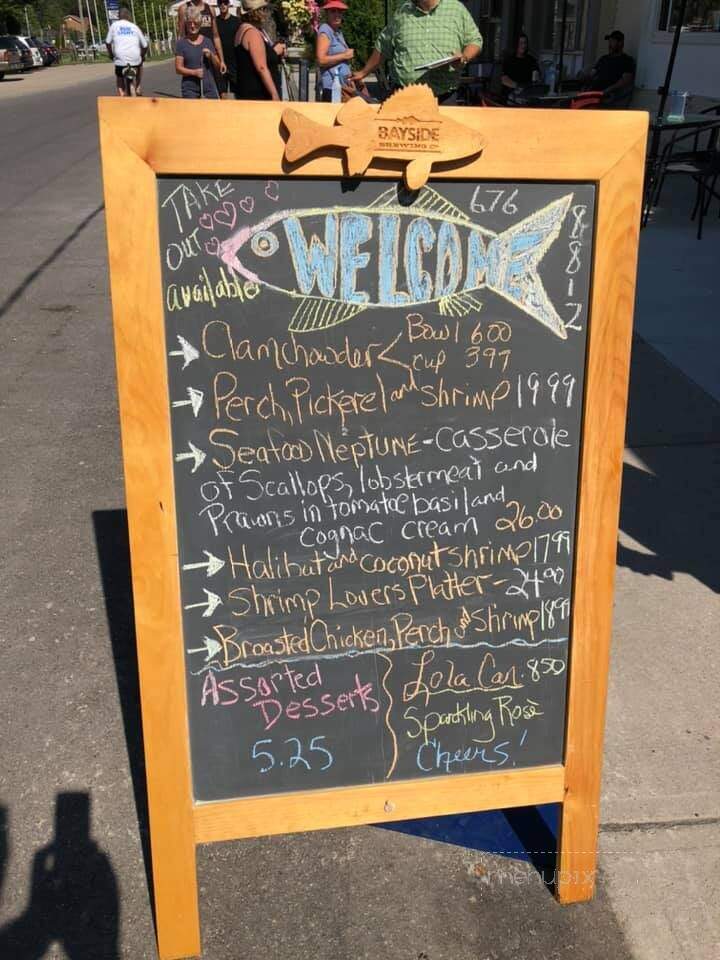 BAYSIDE
BREWING Co
TAKE
OUT
available
WELCOME
676
8812
Clamchowder < Bowl 600
cup 399
Perch, Pickerel and Shrimp 1999
Seafood Neptune - Casserole
of Scallops, lobstermeat and
Prawns in tomatoe basil and
cognac cream 26.00
Halibut and coconut shrimp 1799
Shrimp Lovers Platter - 2400
Broasted Chicken, Perch and Shrimp 1899
Assorted
Desserts
5.25
Lola Can. 850
Sparkling Rosé
Cheers!
menupix